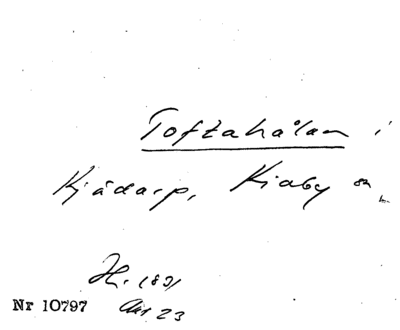 Toftahålan i
Kjådarp, Kiaby sn
H. 1891
Nr 10797 Ant 23